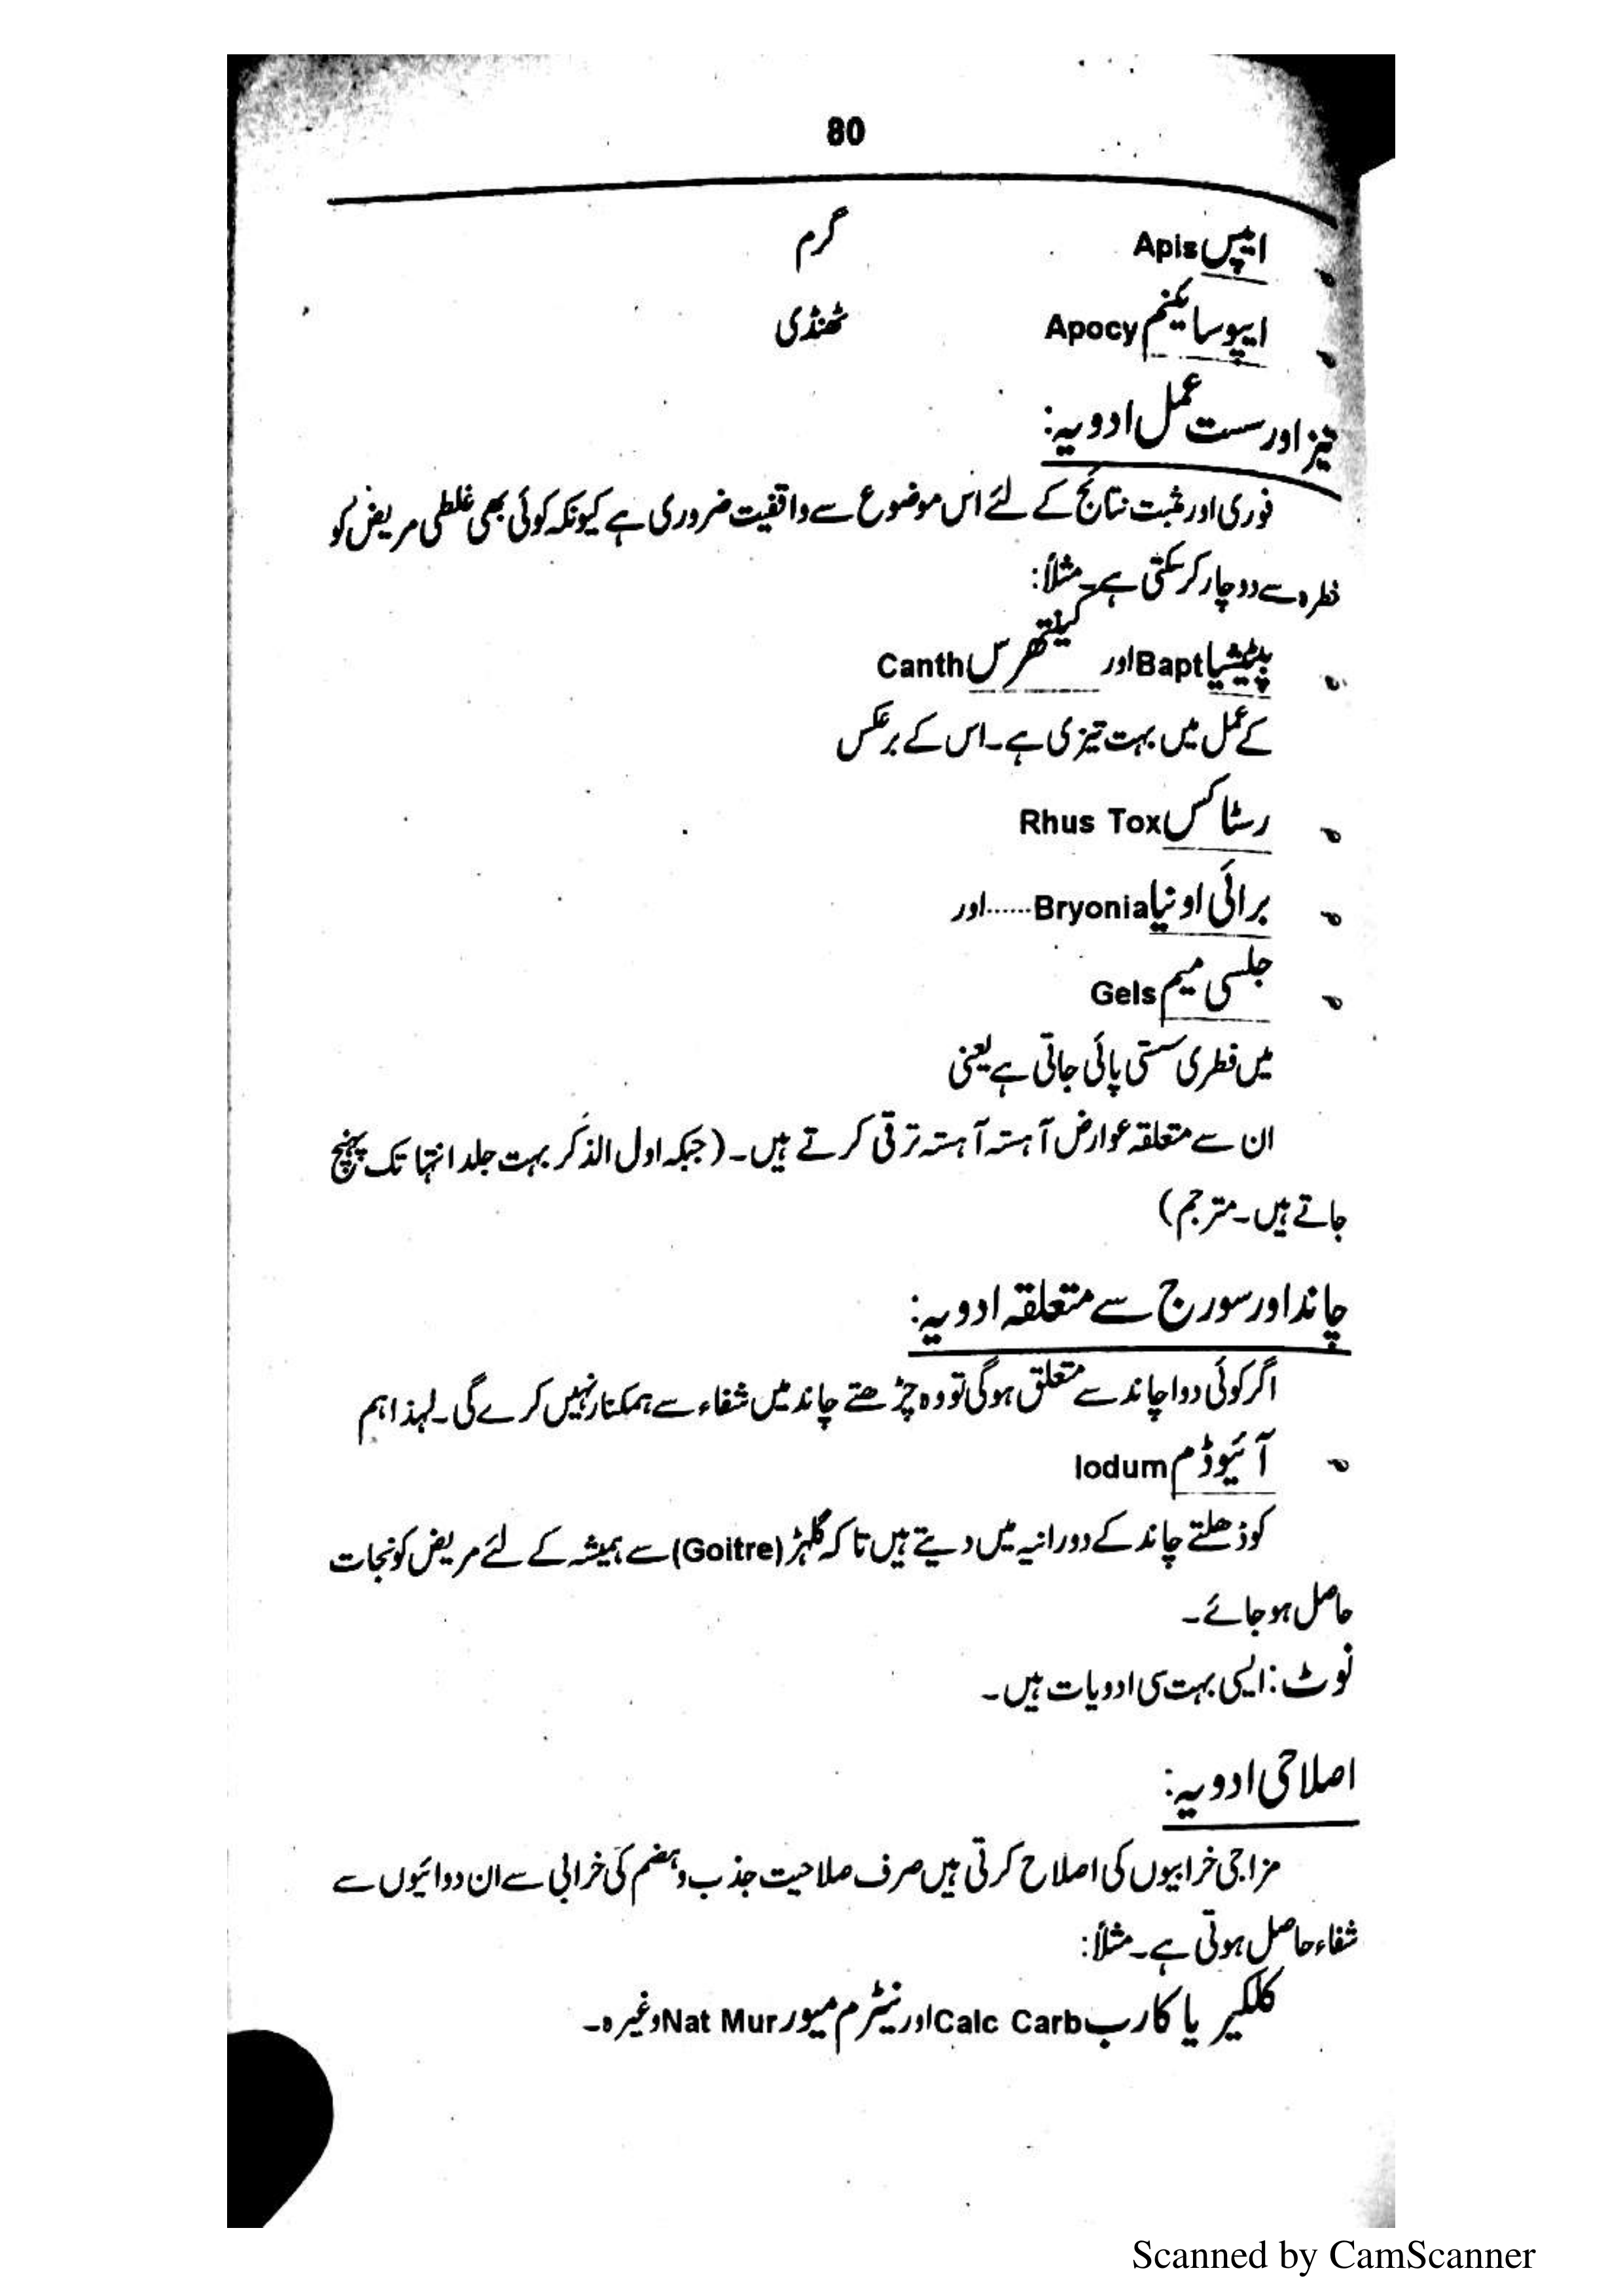 80
ایپس Apis گرم
ایپوسائینم Apocy ٹھنڈی
تیز اور سست عمل ادویہ:
فوری اور مثبت نتائج کے لئے اس موضوع سے واقفیت ضروری ہے کیونکہ کوئی بھی غلطی مریض کو
خطرہ سے دوچار کر سکتی ہے۔ مثلاً:
بپٹیشیا Bapt اور کینتھرس Canth
کے عمل میں بہت تیزی ہے۔ اس کے برعکس
رسٹاکس Rhus Tox
برائی اونیا Bryonia ...... اور
جلسی میم Gels
میں فطری سستی پائی جاتی ہے یعنی
ان سے متعلقہ عوارض آہستہ آہستہ ترقی کرتے ہیں۔ (جبکہ اول الذکر بہت جلد انتہا تک پہنچ
جاتے ہیں۔ مترجم)
چاند اور سورج سے متعلقہ ادویہ:
اگر کوئی دوا چاند سے متعلق ہوگی تو وہ چڑھتے چاند میں شفاء سے ہمکنار نہیں کرے گی۔ لہذا ہم
آئیوڈم Iodum
کو ڈھلتے چاند کے دورانیہ میں دیتے ہیں تاکہ گلہڑ (Goitre) سے ہمیشہ کے لئے مریض کو نجات
حاصل ہو جائے۔
نوٹ: ایسی بہت سی ادویات ہیں۔
اصلاحی ادویہ:
مزاجی خرابیوں کی اصلاح کرتی ہیں صرف صلاحیت جذب و ہضم کی خرابی سے ان دوائیوں سے
شفاء حاصل ہوتی ہے۔ مثلاً:
کلکیریا کارب Calc Carb اور نیٹرم میور Nat Mur وغیرہ۔
Scanned by CamScanner